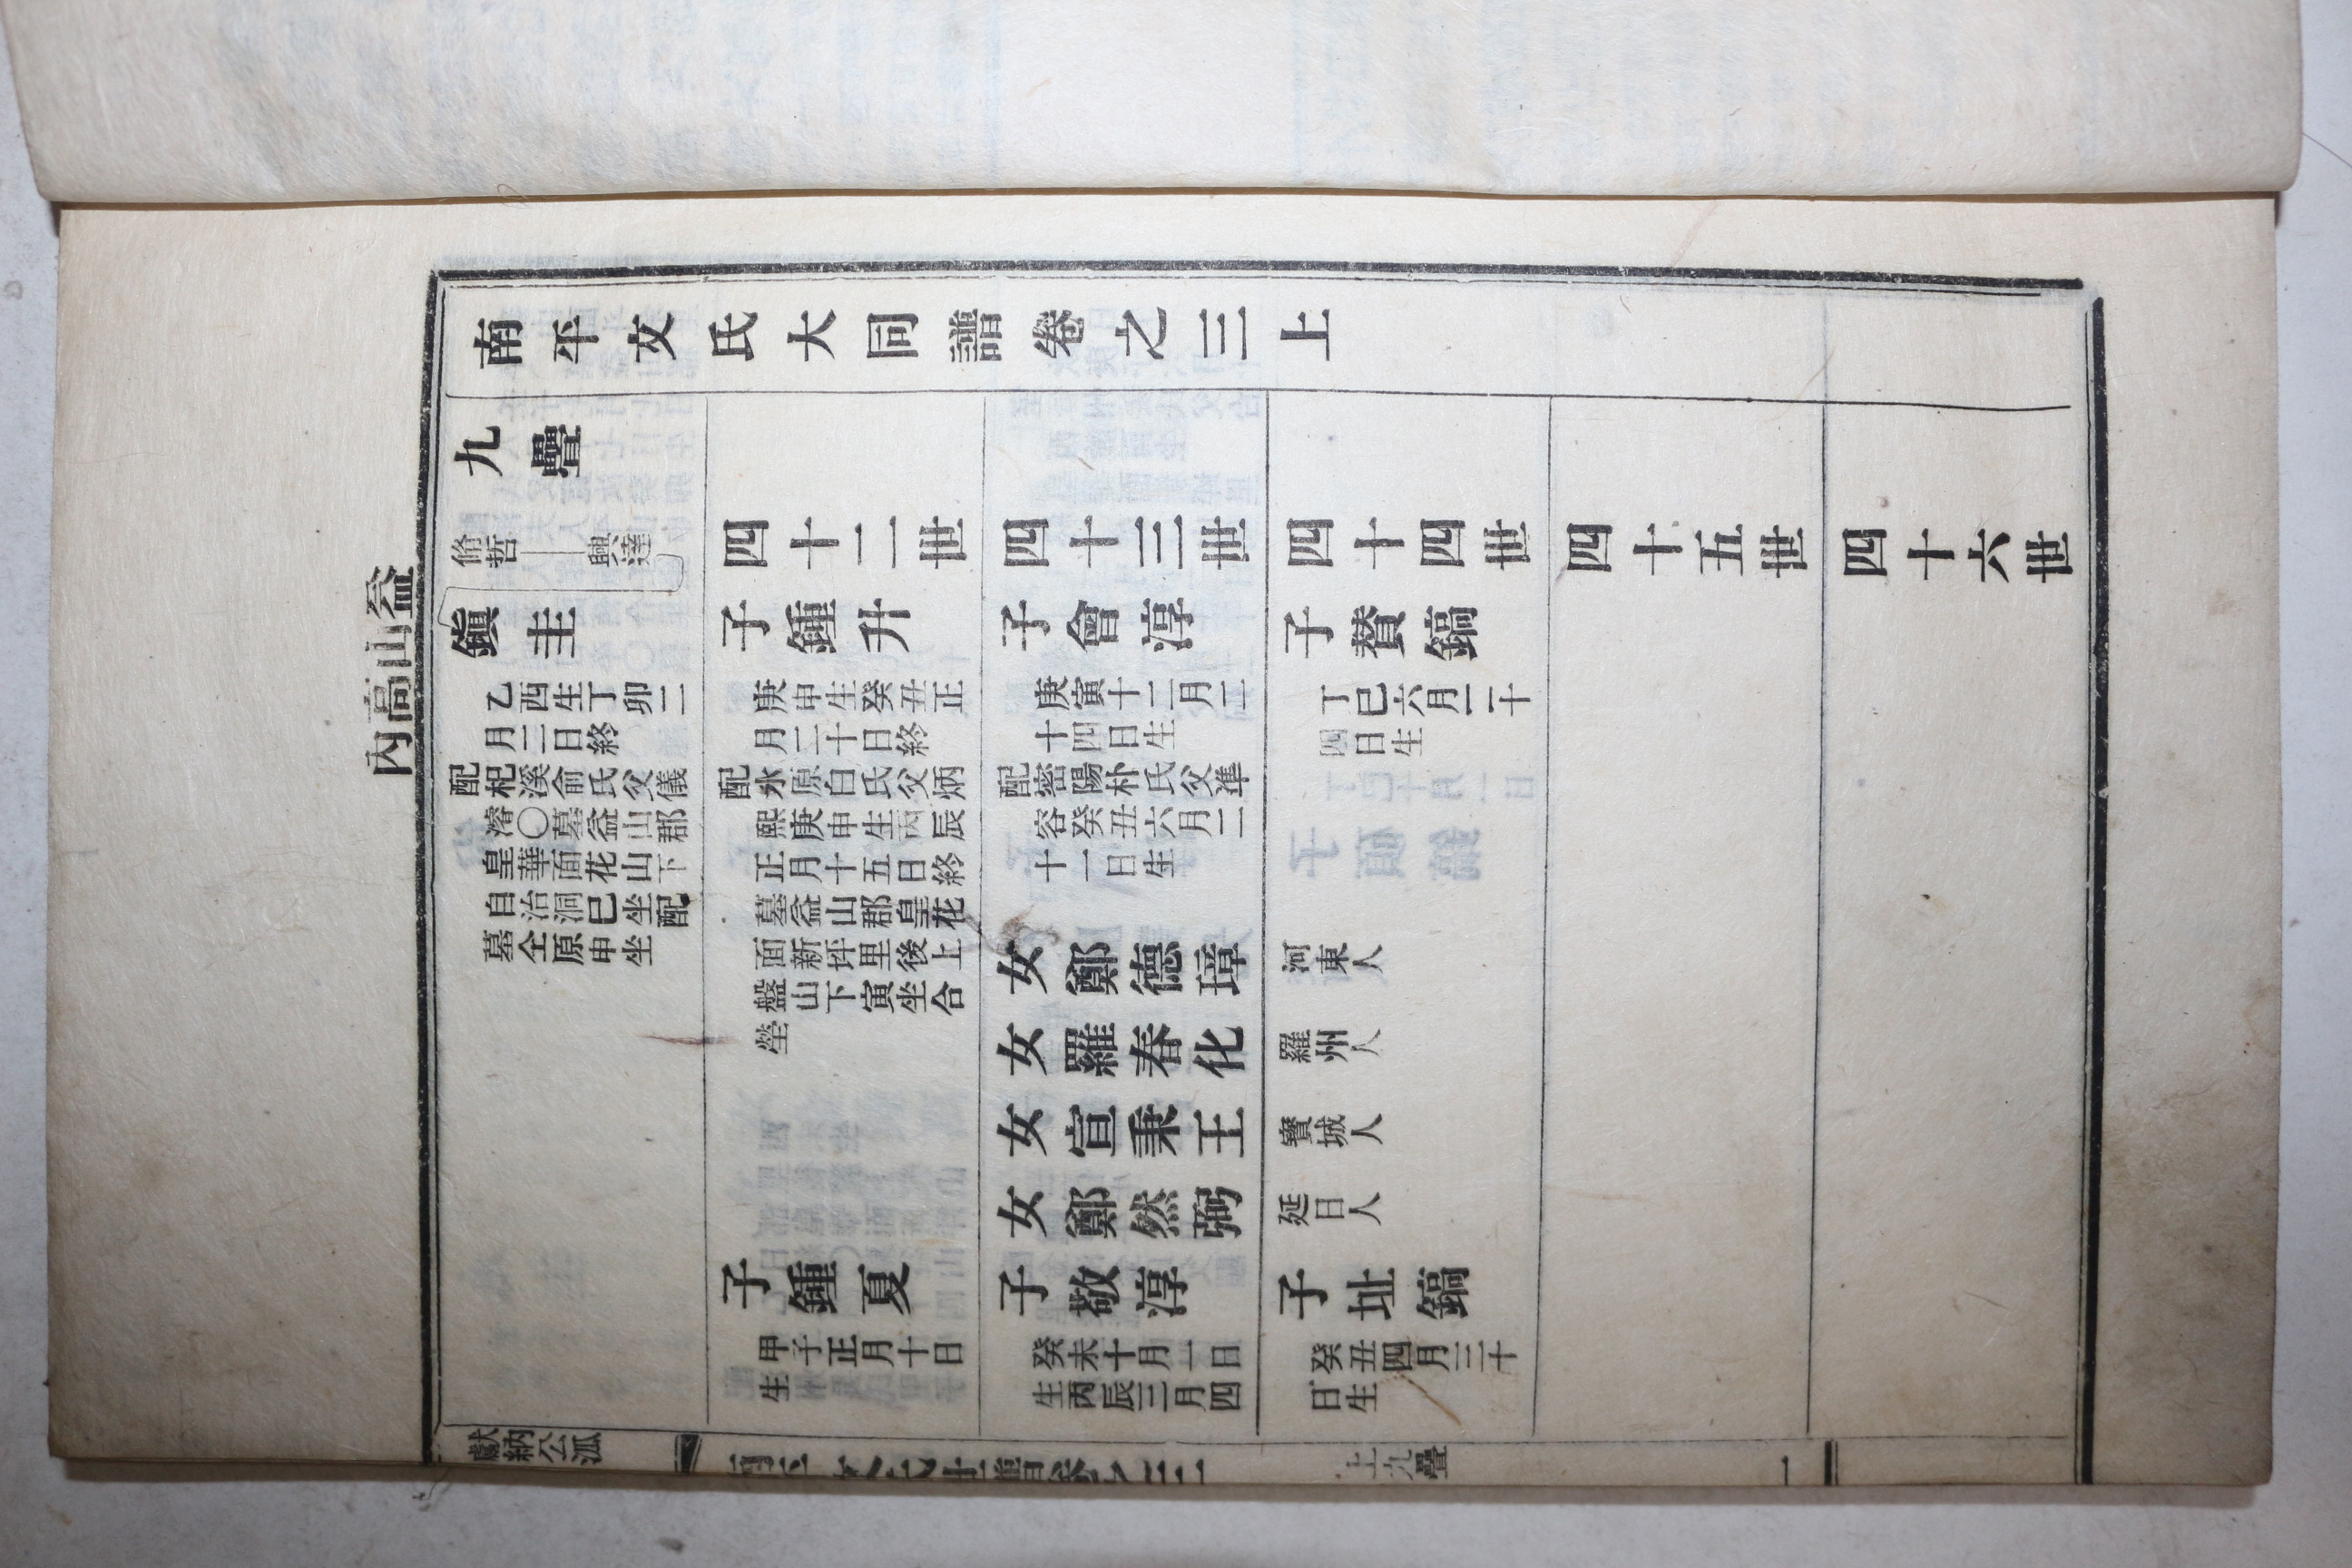 益山高內
南平文氏大同譜卷之三上
九疊
脩哲 興達
鎭圭
乙酉生丁卯二
月二日終
配杞溪俞氏父儀
濬〇墓益山郡
皇華面花山下
自治洞巳坐配
墓仝原申坐
四十二世
子鍾升
庚申生癸丑正
月二十日終
配水原白氏父炳
熙庚申生丙辰
正月十五日終
墓益山郡皇花
面新坪里後上
盤山下寅坐合
塋
子鍾夏
甲子正月十日
生
四十三世
子會淳
庚寅十二月二
十四日生
配密陽朴氏父準
容癸丑六月二
十一日生
女鄭德璋
女羅春化
女宣秉王
女鄭然弼
子敬淳
癸未十月一日
生丙辰三月四
四十四世
子贊鎬
丁巳六月二十
四日生
河東人
羅州人
寶城人
延日人
子址鎬
癸丑四月三十
日生
四十五世
四十六世
獻納公派
南平文氏大同譜卷之三
上九疊
一